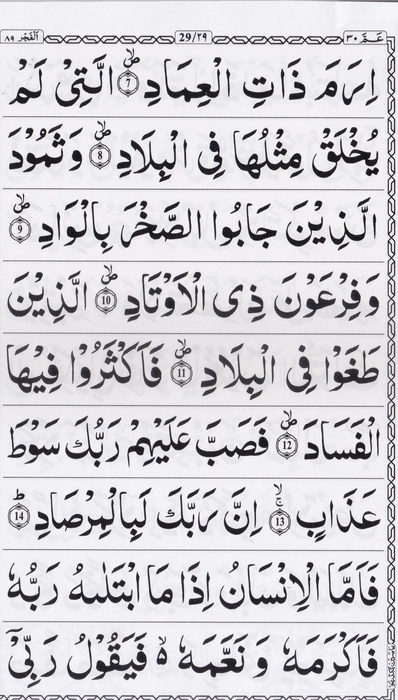 عَمَّ ٣٠ 29/٢٩ اَلْفَجْر ٨٩
اِرَمَ ذَاتِ الْعِمَادِ ۙ۝7 الَّتِىْ لَمْ
يُخْلَقْ مِثْلُهَا فِى الْبِلَادِ ۙ۝8 وَ ثَمُوْدَ
الَّذِيْنَ جَابُوا الصَّخْرَ بِالْوَادِ ۙ۝9
وَ فِرْعَوْنَ ذِى الْاَوْتَادِ ۙ۝10 الَّذِيْنَ
طَغَوْا فِى الْبِلَادِ ۙ۝11 فَاَكْثَرُوْا فِيْهَا
الْفَسَادَ ۙ۝12 فَصَبَّ عَلَيْهِمْ رَبُّكَ سَوْطَ
عَذَابٍ ۚۙ۝13 اِنَّ رَبَّكَ لَبِالْمِرْصَادِ ؕ۝14
فَاَمَّا الْاِنْسَانُ اِذَا مَا ابْتَلٰىهُ رَبُّهٗ
فَاَكْرَمَهٗ وَ نَعَّمَهٗ ۙ۬ فَيَقُوْلُ رَبِّىْۤ